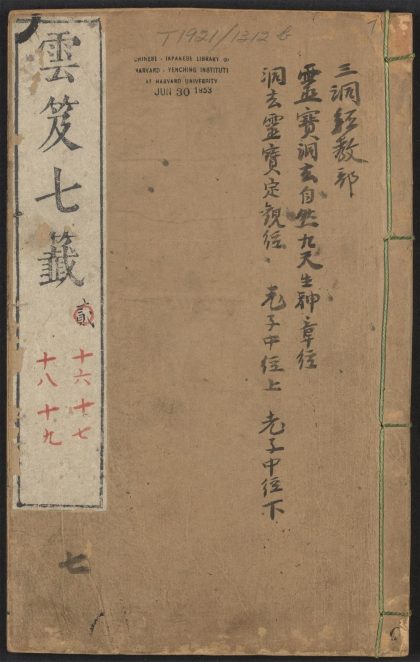 T1921/1312b
CHINESE - JAPANESE LIBRARY OF
HARVARD - YENCHING INSTITUTE
AT HARVARD UNIVERSITY
JUN 30 1953
三洞經教部
靈寶洞玄自然九天生神章經
洞玄靈寶定觀經 老子中經上 老子中經下
雲笈七籤
貳
十六 十七
十八 十九
七